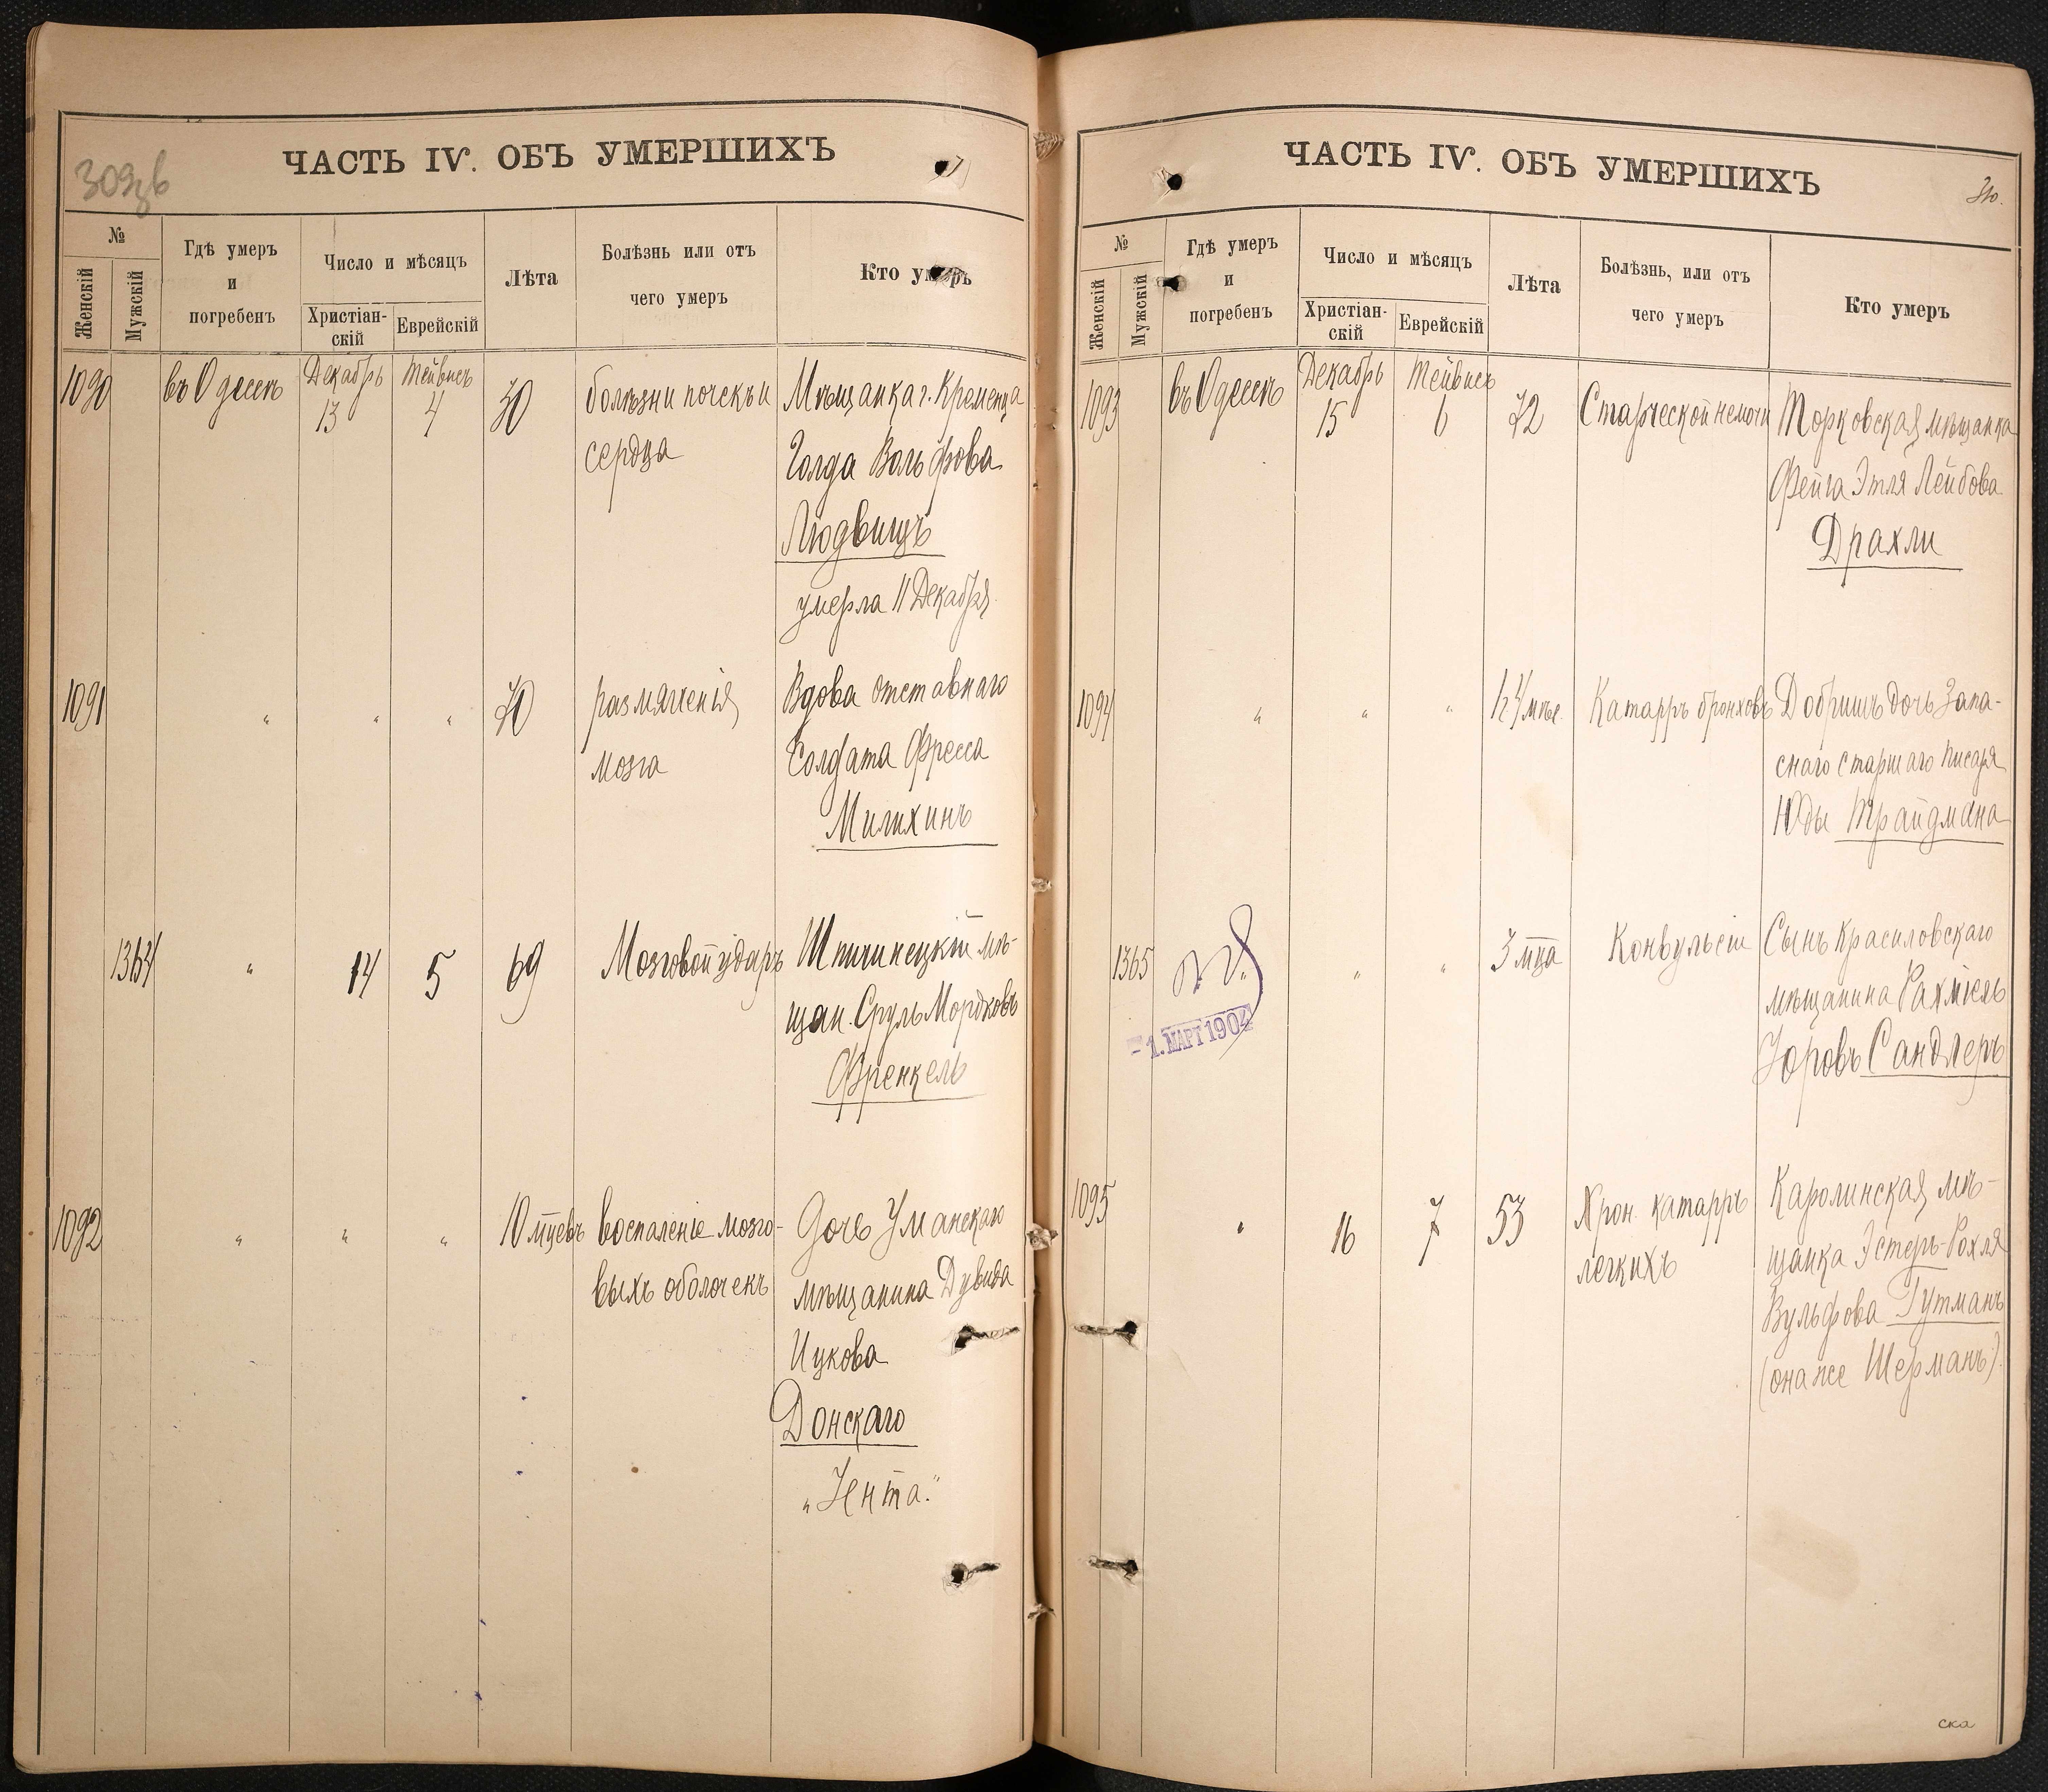 309 об
ЧАСТЬ IV. ОБЪ УМЕРШИХЪ
№
Женскій
Мужскій
Гдѣ умеръ
и
погребенъ
Число и мѣсяцъ
Христіан-
скій
Еврейскій
Лѣта
Болѣзнь или отъ
чего умеръ
Кто умеръ
1090
въ Одессѣ
Декабрь
13
Тейвисъ
4
30
болѣзни почекъ и
сердца
Мѣщанка г. Кременца
Голда Вольфова
Людвицъ
умерла 11 Декабря
1091
" " "
70
размягченія
мозга
Вдова отставнаго
Солдата Фресса
Милихинъ
1364
"
14
5
69
Мозговой ударъ
Шпичинецкій мѣ-
щан. Сруль Мордковъ
Френкель
1092
" " "
10 мцевъ
воспаленіе мозго-
выхъ оболочекъ
Дочь Уманскаго
мѣщанина Дувида
Ицкова
Донскаго
"Іента."
ЧАСТЬ IV. ОБЪ УМЕРШИХЪ
310.
№
Женскій
Мужскій
Гдѣ умеръ
и
погребенъ
Число и мѣсяцъ
Христіан-
скій
Еврейскій
Лѣта
Болѣзнь, или отъ
чего умеръ
Кто умеръ
1093
въ Одессѣ
Декабрь
15
Тейвисъ
6
72
Старческой немочи
Торковская мѣщанка
Фейга Этля Лейбова
Драхли
1094
" " "
Катарръ бронховъ
Добришъ дочь Запа-
снаго старшаго писаря
Юды Трайдмана
1365
- 1. МАРТ 1904
" "
3 мца
Конвульсіи
Сынъ Красиловскаго
мѣщанина Рахміель
Уоровъ Сандлеръ
1095
"
16
7
53
Хрон. катарръ
легкихъ
Каролинская мѣ-
щанка Эстеръ-Рохля
Вульфова Гутманъ
(она же Шерманъ).
ска